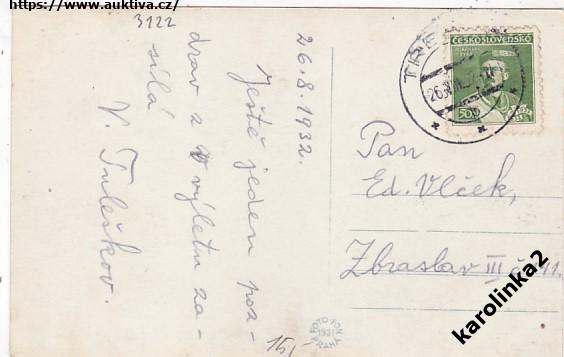 https://www.auktiva.cz/
3122
26.8.1932.
Ještě jeden poz-
drav z výletu za-
sílá
V. Tuleškov.
ČESKOSLOVENSKO
50
Pan
Ed. Vlček,
Zbraslav III č 11.
15,-
FOTO-FON
1931
PRAHA
karolinka2